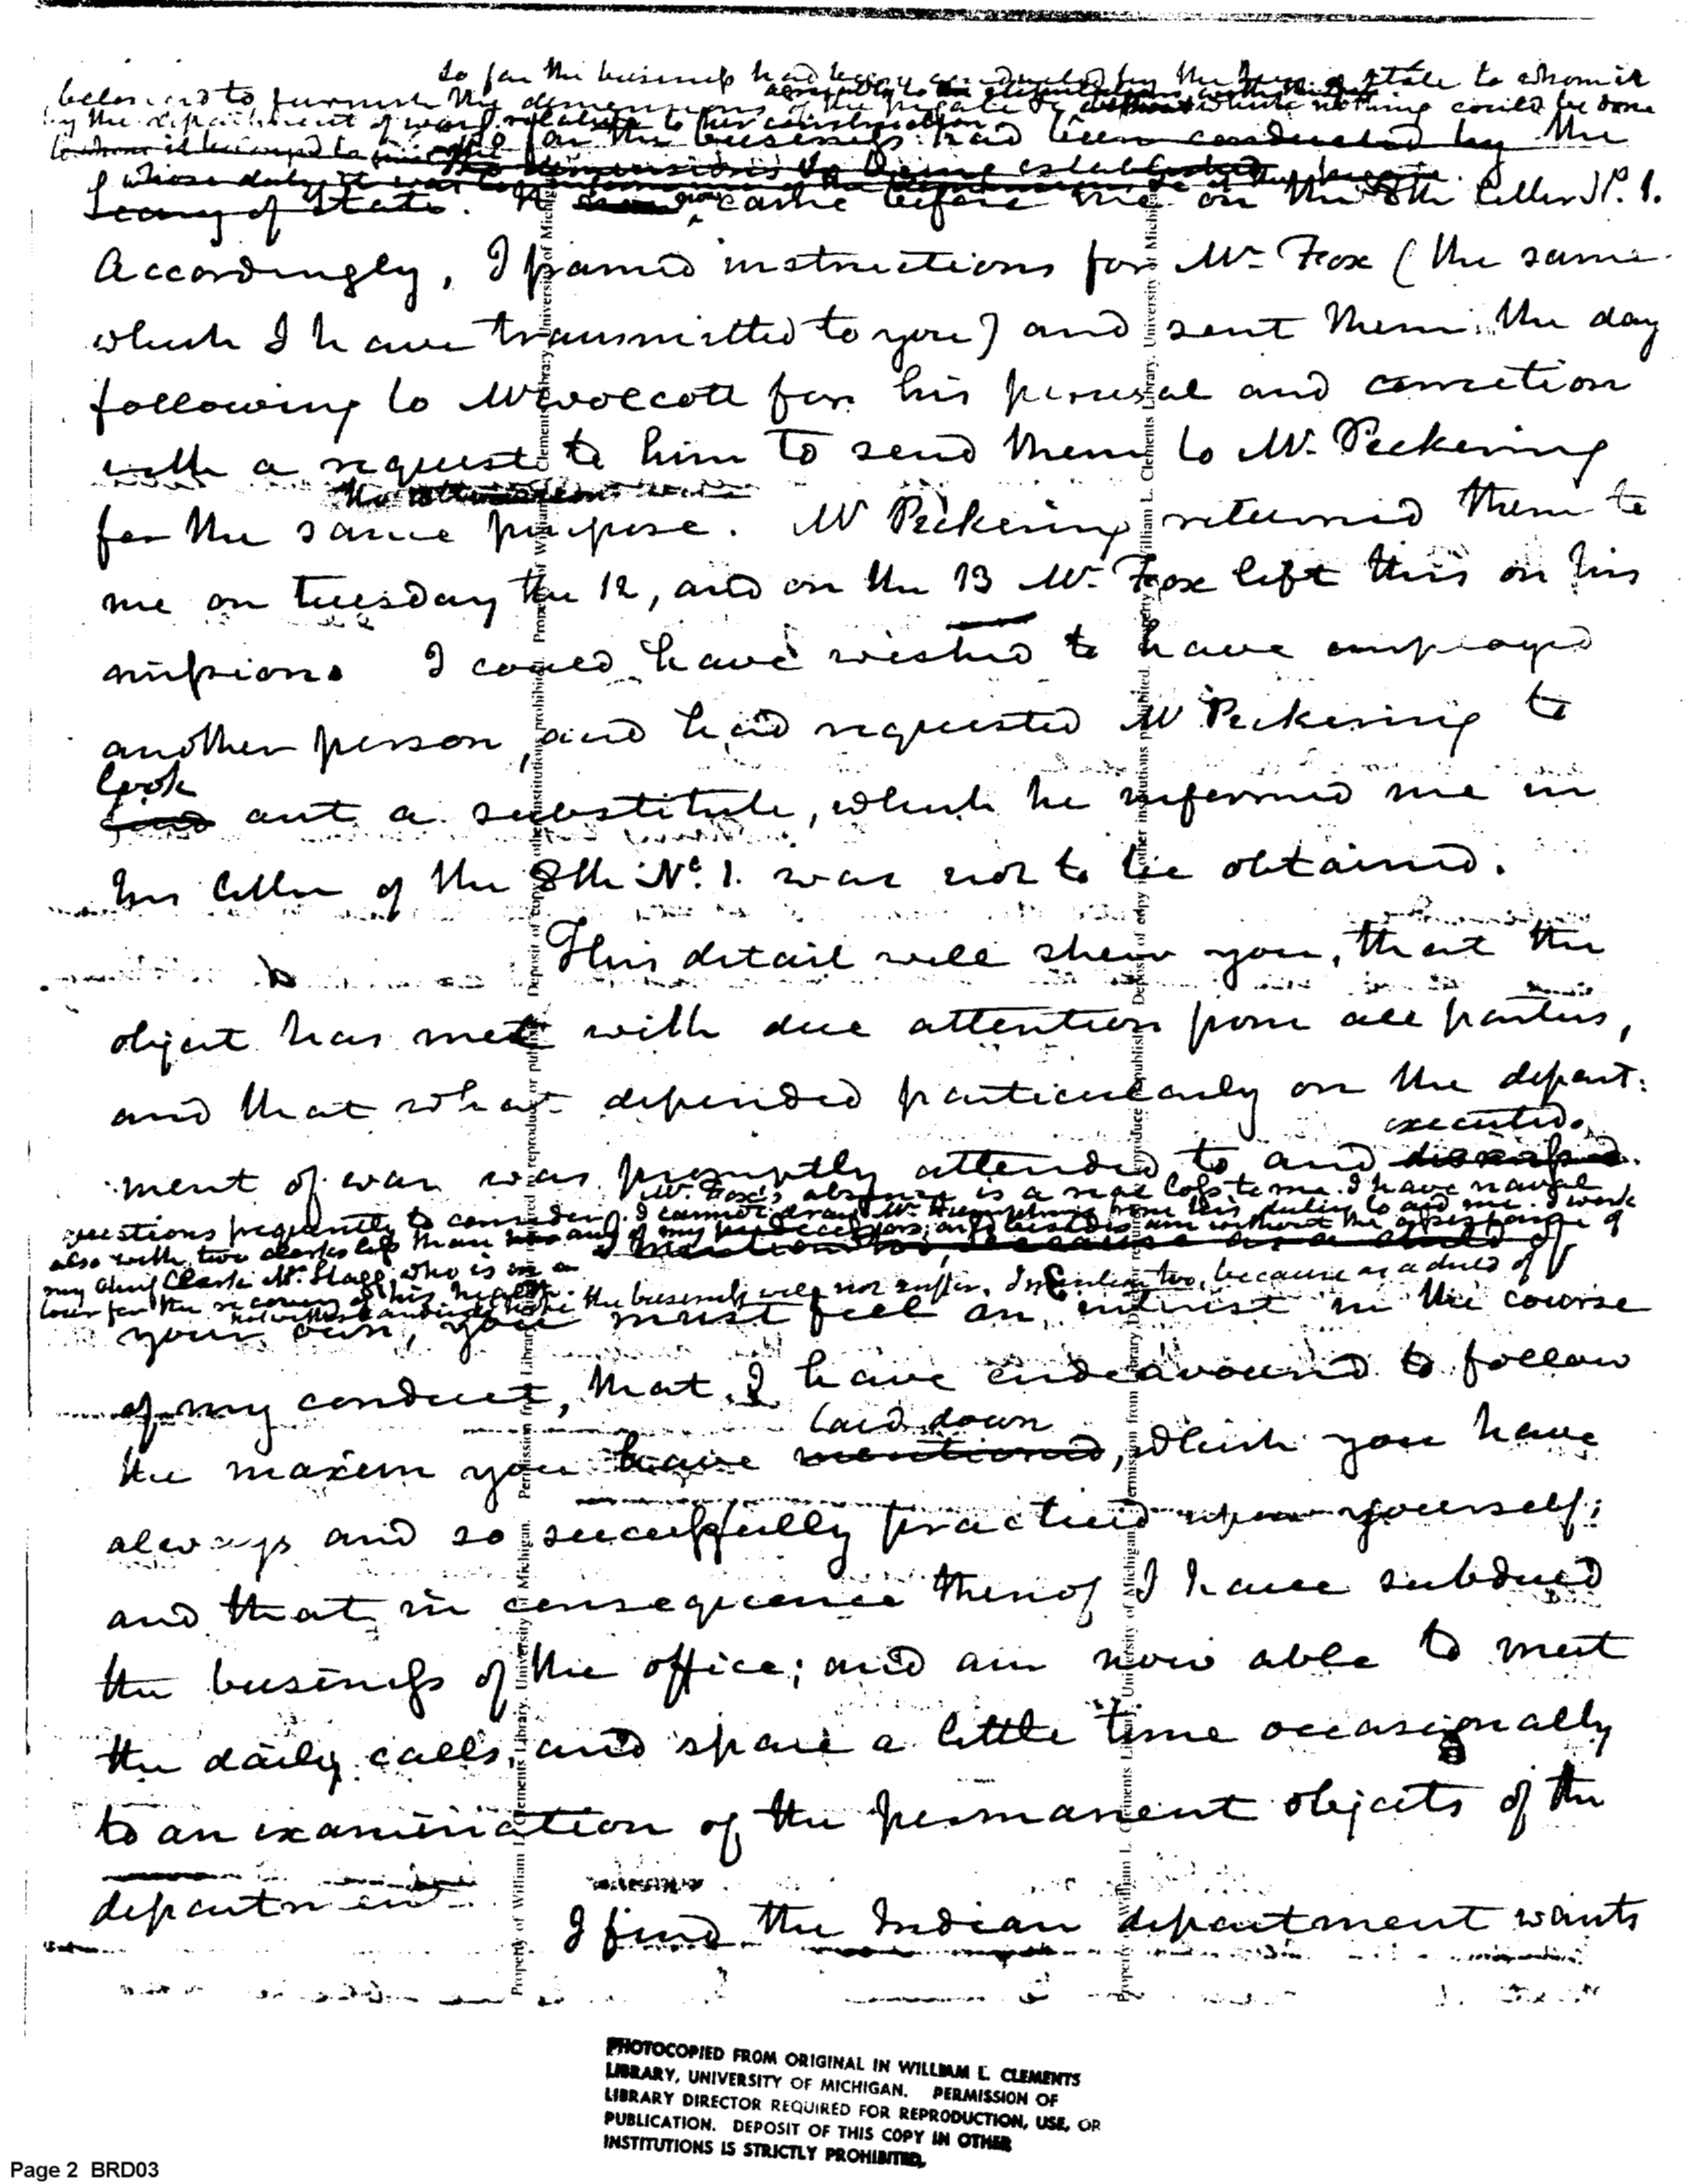 so far the business had been conducted by the Secy of State to whom it
belonged to furnish the dimensions of the frigate &c without which nothing could be done
by the department of war relative to her construction
so far the business had been conducted by the
whose duty it was
Secry of State. It now came before me on the 8th letter No. 1.
Accordingly, I framed instructions for Mr. Fox (the same
which I have transmitted to you) and sent them the day
following to Mr Wolcott for his perusal and correction
with a request to him to send them to Mr. Pickering
for the same purpose. Mr Pickering returned them to
me on tuesday the 12, and on the 13 Mr. Fox left this on his
mission. I could have wished to have employed
another person, and had requested Mr Pickering to
look
find out a substitute, which he informed me in
his letter of the 8th No. 1. was not to be obtained.
This detail will shew you, that the
object has met with due attention from all parties,
and that what depended particularly on the depart:
executed.
ment of war was promptly attended to and
Mr. Fox's absence is a real loss to me. I have naval
questions frequently to consider. I cannot draw Mr. Humphreys from his duties to aid me. I work
also with two clerks less than any of my predecessors; and besides am without the assistance of
my chief Clerk Mr. Stagg, who is on a
I mention too, because as a child of
tour for the recovery of his health.
notwithstanding the business will not suffer. I mention too, because as a child of
your own, you must feel an interest in the course
of my conduct, that I have endeavoured to follow
laid down
the maxim you have mentioned, which you have
always and so successfully practised upon yourself;
and that in consequence thereof I have subdued
the business of the office; and am now able to meet
the daily calls, and spare a little time occasionally
to an examination of the permanent objects of the
department.
I find the Indian department wants
PHOTOCOPIED FROM ORIGINAL IN WILLIAM L. CLEMENTS
LIBRARY, UNIVERSITY OF MICHIGAN. PERMISSION OF
LIBRARY DIRECTOR REQUIRED FOR REPRODUCTION, USE, OR
PUBLICATION. DEPOSIT OF THIS COPY IN OTHER
INSTITUTIONS IS STRICTLY PROHIBITED.
Page 2 BRD03